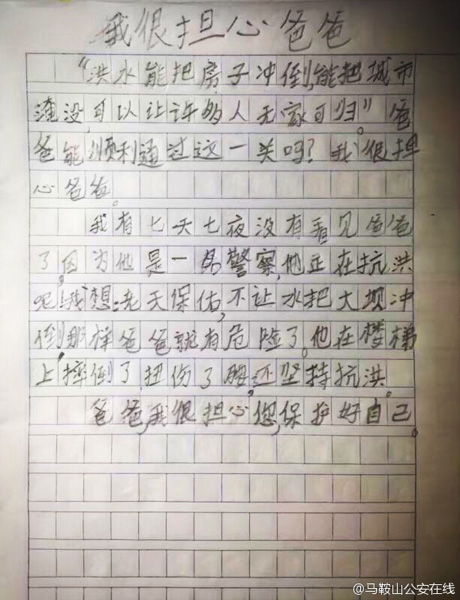 我很担心爸爸
“洪水能把房子冲倒,能把城市
淹没,可以让许多人无家可归”。爸
爸能顺利通过这一关吗?我很担
心爸爸。
我有七天七夜没有看见爸爸
了,因为他是一名警察,他正在抗洪
呢!我想:老天保佑,不让水把大坝冲
倒,那样爸爸就有危险了。他在楼梯
上,摔倒了,扭伤了腰,还坚持抗洪。
爸爸,我很担心您,保护好自己。
@马鞍山公安在线